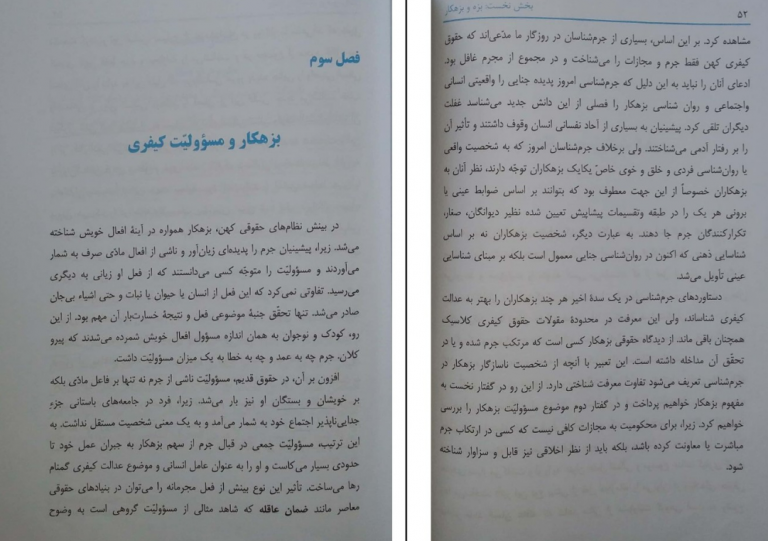 فصل سوم
بزهکار و مسؤولیّت کیفری
در بینش نظام‌های حقوقی کهن، بزهکار همواره در آینهٔ افعال خویش شناخته
می‌شد. زیرا، پیشینیان جرم را پدیده‌ای زیان‌آور و ناشی از افعال مادّی صرف به شمار
می‌آوردند و مسؤولیّت را متوجّه کسی می‌دانستند که از فعل او زیانی به دیگری
می‌رسید. تفاوتی نمی‌کرد که این فعل از انسان یا حیوان یا نبات و حتی اشیاء بی‌جان
صادر می‌شد. تنها تحقّق جنبهٔ موضوعی فعل و نتیجهٔ خسارت‌بار آن مهم بود. از این
رو، کودک و نوجوان به همان اندازه مسؤول افعال خویش شمرده می‌شدند که پیرو
کلان، جرم چه به عمد و چه به خطا به یک میزان مسؤولیّت داشت.
افزون بر آن، در حقوق قدیم، مسؤولیّت ناشی از جرم نه تنها بر فاعل مادّی بلکه
بر خویشان و بستگان او نیز بار می‌شد. زیرا، فرد در جامعه‌های باستانی جزءِ
جدایی‌ناپذیر اجتماع خود به شمار می‌آمد و به یک معنی شخصیت مستقل نداشت. به
این ترتیب، مسؤولیّت جمعی در قبال جرم از سهم بزهکار به جبران عمل خود تا
حدودی بسیار می‌کاست و او را به عنوان عامل انسانی و موضوع عدالت کیفری گمنام
رها می‌ساخت. تأثیر این نوع بینش از فعل مجرمانه را می‌توان در بنیادهای حقوقی
معاصر مانند ضمان عاقله که شاهد مثالی از مسؤولیّت گروهی است به وضوح
۵۲
بخش نخست: بزه و بزهکار
مشاهده کرد. بر این اساس، بسیاری از جرم‌شناسان در روزگار ما مدّعی‌اند که حقوق
کیفری کهن فقط جرم و مجازات را می‌شناخت و در مجموع از مجرم غافل بود.
ادعای آنان را نباید به این دلیل که جرم‌شناسی امروز پدیده جنایی را واقعیتی انسانی
واجتماعی و روان شناسی بزهکار را فصلی از این دانش جدید می‌شناسد غفلت
دیگران تلقی کرد. پیشینیان به بسیاری از آحاد نفسانی انسان وقوف داشتند و تأثیر آن
را بر رفتار آدمی می‌شناختند. ولی برخلاف جرم‌شناسان امروز که به شخصیت واقعی
یا روان‌شناسی فردی و خلق و خوی خاصّ یکایک بزهکاران توجّه دارند، نظر آنان به
بزهکاران خصوصاً از این جهت معطوف بود که بتوانند بر اساس ضوابط عینی یا
برونی هر یک را در طبقه وتقسیمات پیشاپیش تعیین شده نظیر دیوانگان، صغار،
تکرارکنندگان جرم جا دهند. به عبارت دیگر، شخصیت بزهکاران نه بر اساس
شناسایی ذهنی که اکنون در روان‌شناسی جنایی معمول است بلکه بر مبنای شناسایی
عینی تأویل می‌شد.
دستاوردهای جرم‌شناسی در یک سدهٔ اخیر هر چند بزهکاران را بهتر به عدالت
کیفری شناساند، ولی این معرفت در محدودهٔ مقولات حقوق کیفری کلاسیک
همچنان باقی ماند. از دیدگاه حقوقی بزهکار کسی است که مرتکب جرم شده و یا در
تحقّق آن مداخله داشته است. این تعبیر با آنچه از شخصیت ناسازگار بزهکار در
جرم‌شناسی تعریف می‌شود تفاوت معرفت شناختی دارد. از این رو در گفتار نخست به
مفهوم بزهکار خواهیم پرداخت و در گفتار دوم موضوع مسؤولیّت بزهکار را بررسی
خواهیم کرد. زیرا، برای محکومیت به مجازات کافی نیست که کسی در ارتکاب جرم
مباشرت یا معاونت کرده باشد، بلکه باید از نظر اخلاقی نیز قابل و سزاوار شناخته
شود.